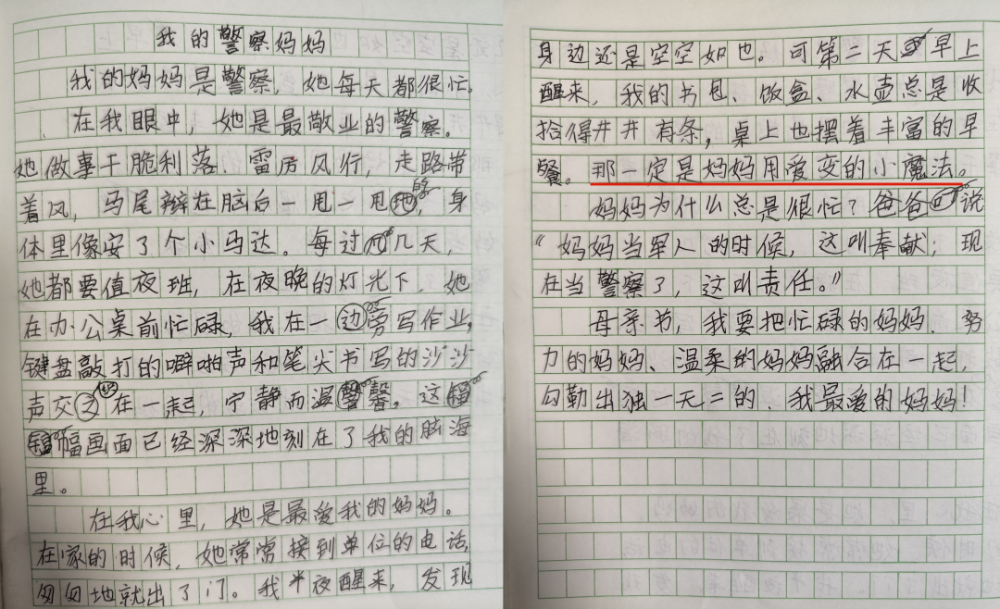 我的警察妈妈
我的妈妈是警察，她每天都很忙。
在我眼中，她是最敬业的警察。
她做事干脆利落、雷厉风行，走路带
着风，马尾辫在脑白一甩一甩地，身
体里像安了个小马达。每过几天，
她都要值夜班，在夜晚的灯光下，她
在办公桌前忙碌，我在一边旁写作业，
键盘敲打的噼啪声和笔尖书写的沙沙
声交在一起，宁静而温馨。这
幅画面已经深深地刻在了我的脑海
里。
在我心里，她是最爱我的妈妈。
在家的时候，她常常接到单位的电话，
匆匆地就出了门。我半夜醒来，发现
身边还是空空如也。可第二天早上
醒来，我的书包、饭盒、水壶总是收
拾得井井有条，桌上也摆着丰富的早
餐。那一定是妈妈用爱变的小魔法。
妈妈为什么总是很忙？爸爸说
“妈妈当军人的时候，这叫奉献；现
在当警察了，这叫责任。”
母亲节，我要把忙碌的妈妈、努
力的妈妈、温柔的妈妈融合在一起，
勾勒出独一无二的、我最爱的妈妈！